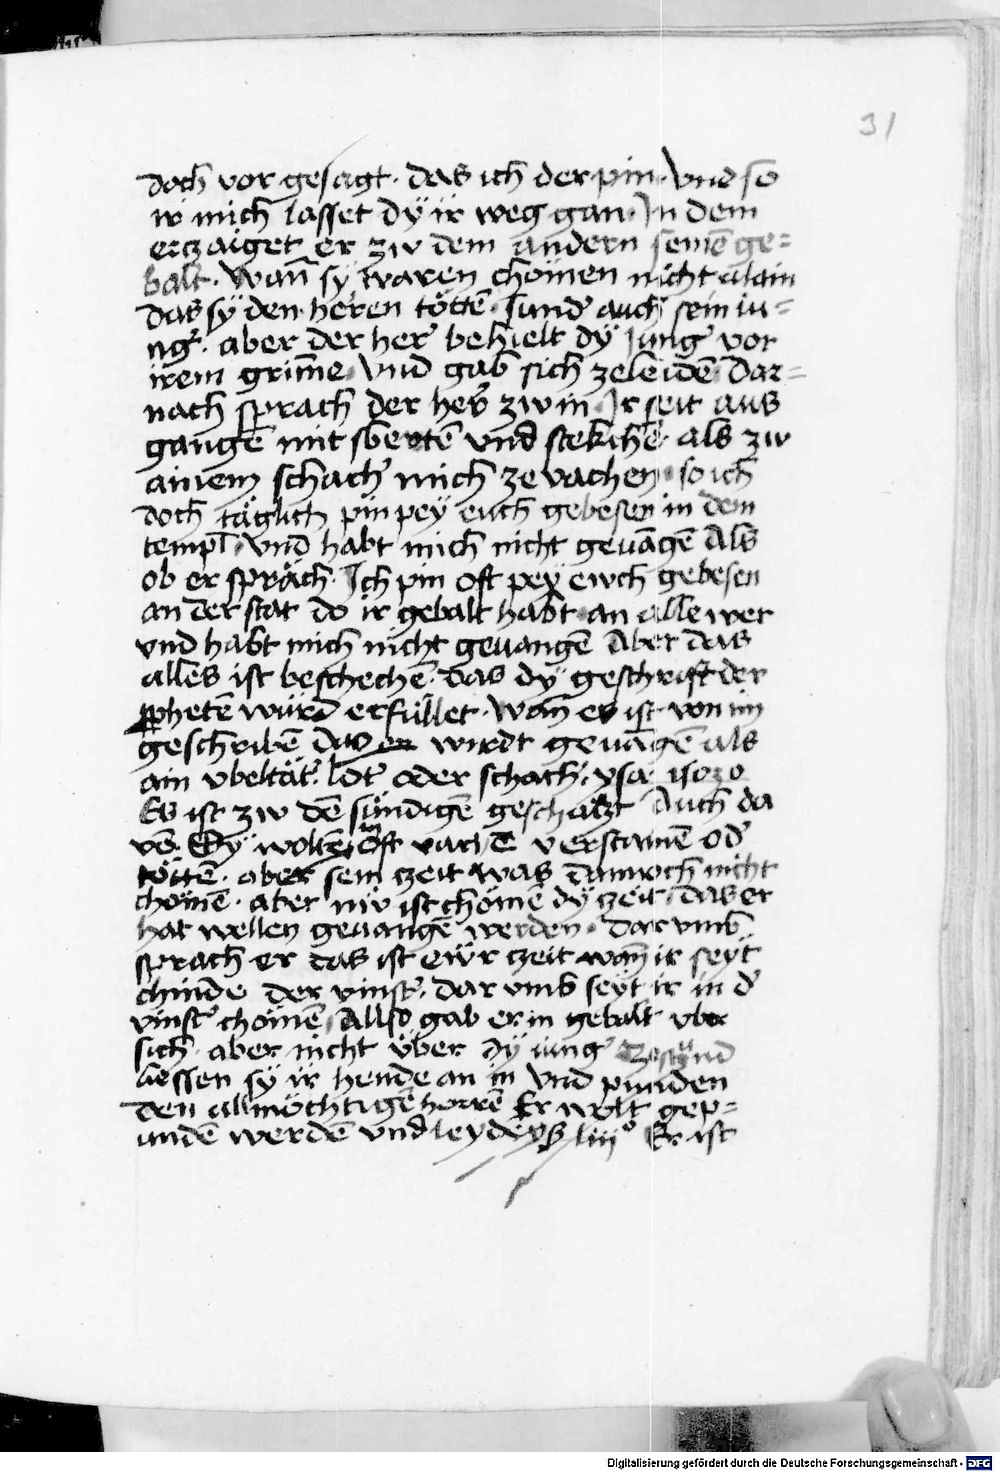 31
doch vor gesagt · das ich der pin · Vnd so
ir mich lasset dÿ ir weg gan · In dem
erczaiget er zw dem andern seinē ge=
balt · Wan̄ sÿ waren chömen nicht alain
das sÿ den heren töttē · Sund̛ auch sein iu=
ng̛ · aber der her̛ behielt dÿ Jung̛ vor
irem grim̄e · Vnd gab sich zeleidē · Dar=
nach sprach der her̛ zw in · Ir seit aus
gangē mit sbertē vnd stekchē · als zw
ainem schach̛ mich ze vachen · so ich
doch täglich pin peÿ euch gebesen in dem
templ · vnd habt mich nicht geuāgē Als
ob er spräch · Ich pin oft peÿ ewch gebesen
an der stat do ir gebalt habt · an alle wer
vnd habt mich nicht geuangē Aber das
alles ist beschechē · das dÿ geschrift der
ꝓphetē würd erfüllet · wan̄ es ist von im
geschribē das er wirdt geuāgē als
ain vbeltät̛ · lot̛ oder schach̛ · ysa
Es ist zw dē sündigē geschäczt Auch da
vō · Dÿ woltē in oft vachē verstainē od̛
töttē · aber sein czeit was dannoch nicht
chömē · aber nw ist chömē dÿ czeit · das er
hat wellen geuangē werden · Dar vmb
sprach er das ist ewr czeit wan̄ ir seÿt
chinde der vinst̛ · dar vmb seÿt ir in d̛
vinst̛ chömē · Allso gab er in gebalt vber
sich · aber nicht über dÿ iung̛ Zestund
liessen sÿ ir hende an in Vnd punden
den allmöchtigē herrē Er wolt gep=
undē werdē vnd leydē ys liiiº Er ist
Digitalisierung gefördert durch die Deutsche Forschungsgemeinschaft - DFG